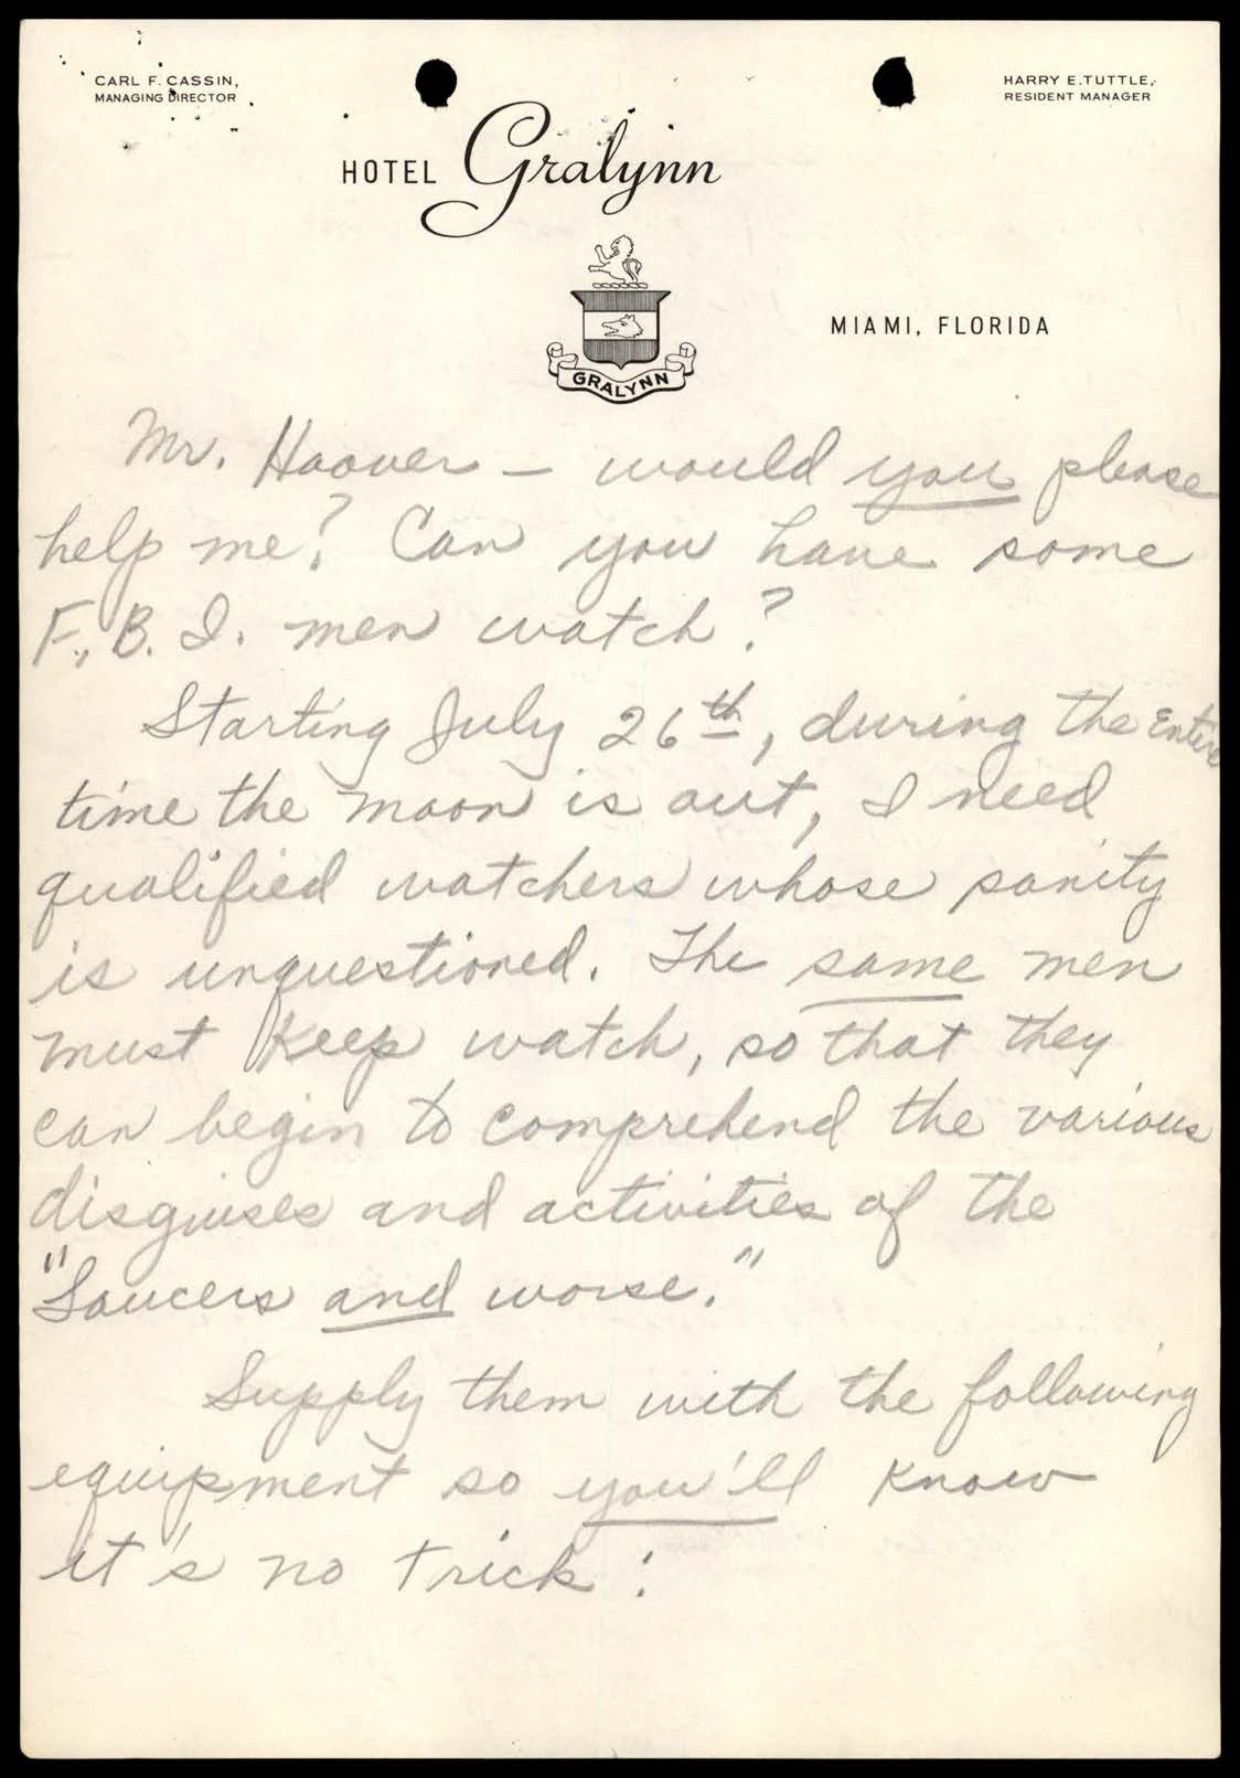 CARL F. CASSIN,
MANAGING DIRECTOR
HARRY E. TUTTLE,
RESIDENT MANAGER
HOTEL Gralynn
GRALYNN
MIAMI, FLORIDA
Mr. Hoover — would you please
help me? Can you have some
F.B.I. men watch?
Starting July 26th, during the Entire
time the moon is out, I need
qualified watchers whose sanity
is unquestioned. The same men
must keep watch, so that they
can begin to comprehend the various
disguises and activities of the
"Saucers and worse."
Supply them with the following
equipment so you'll know
it's no trick: